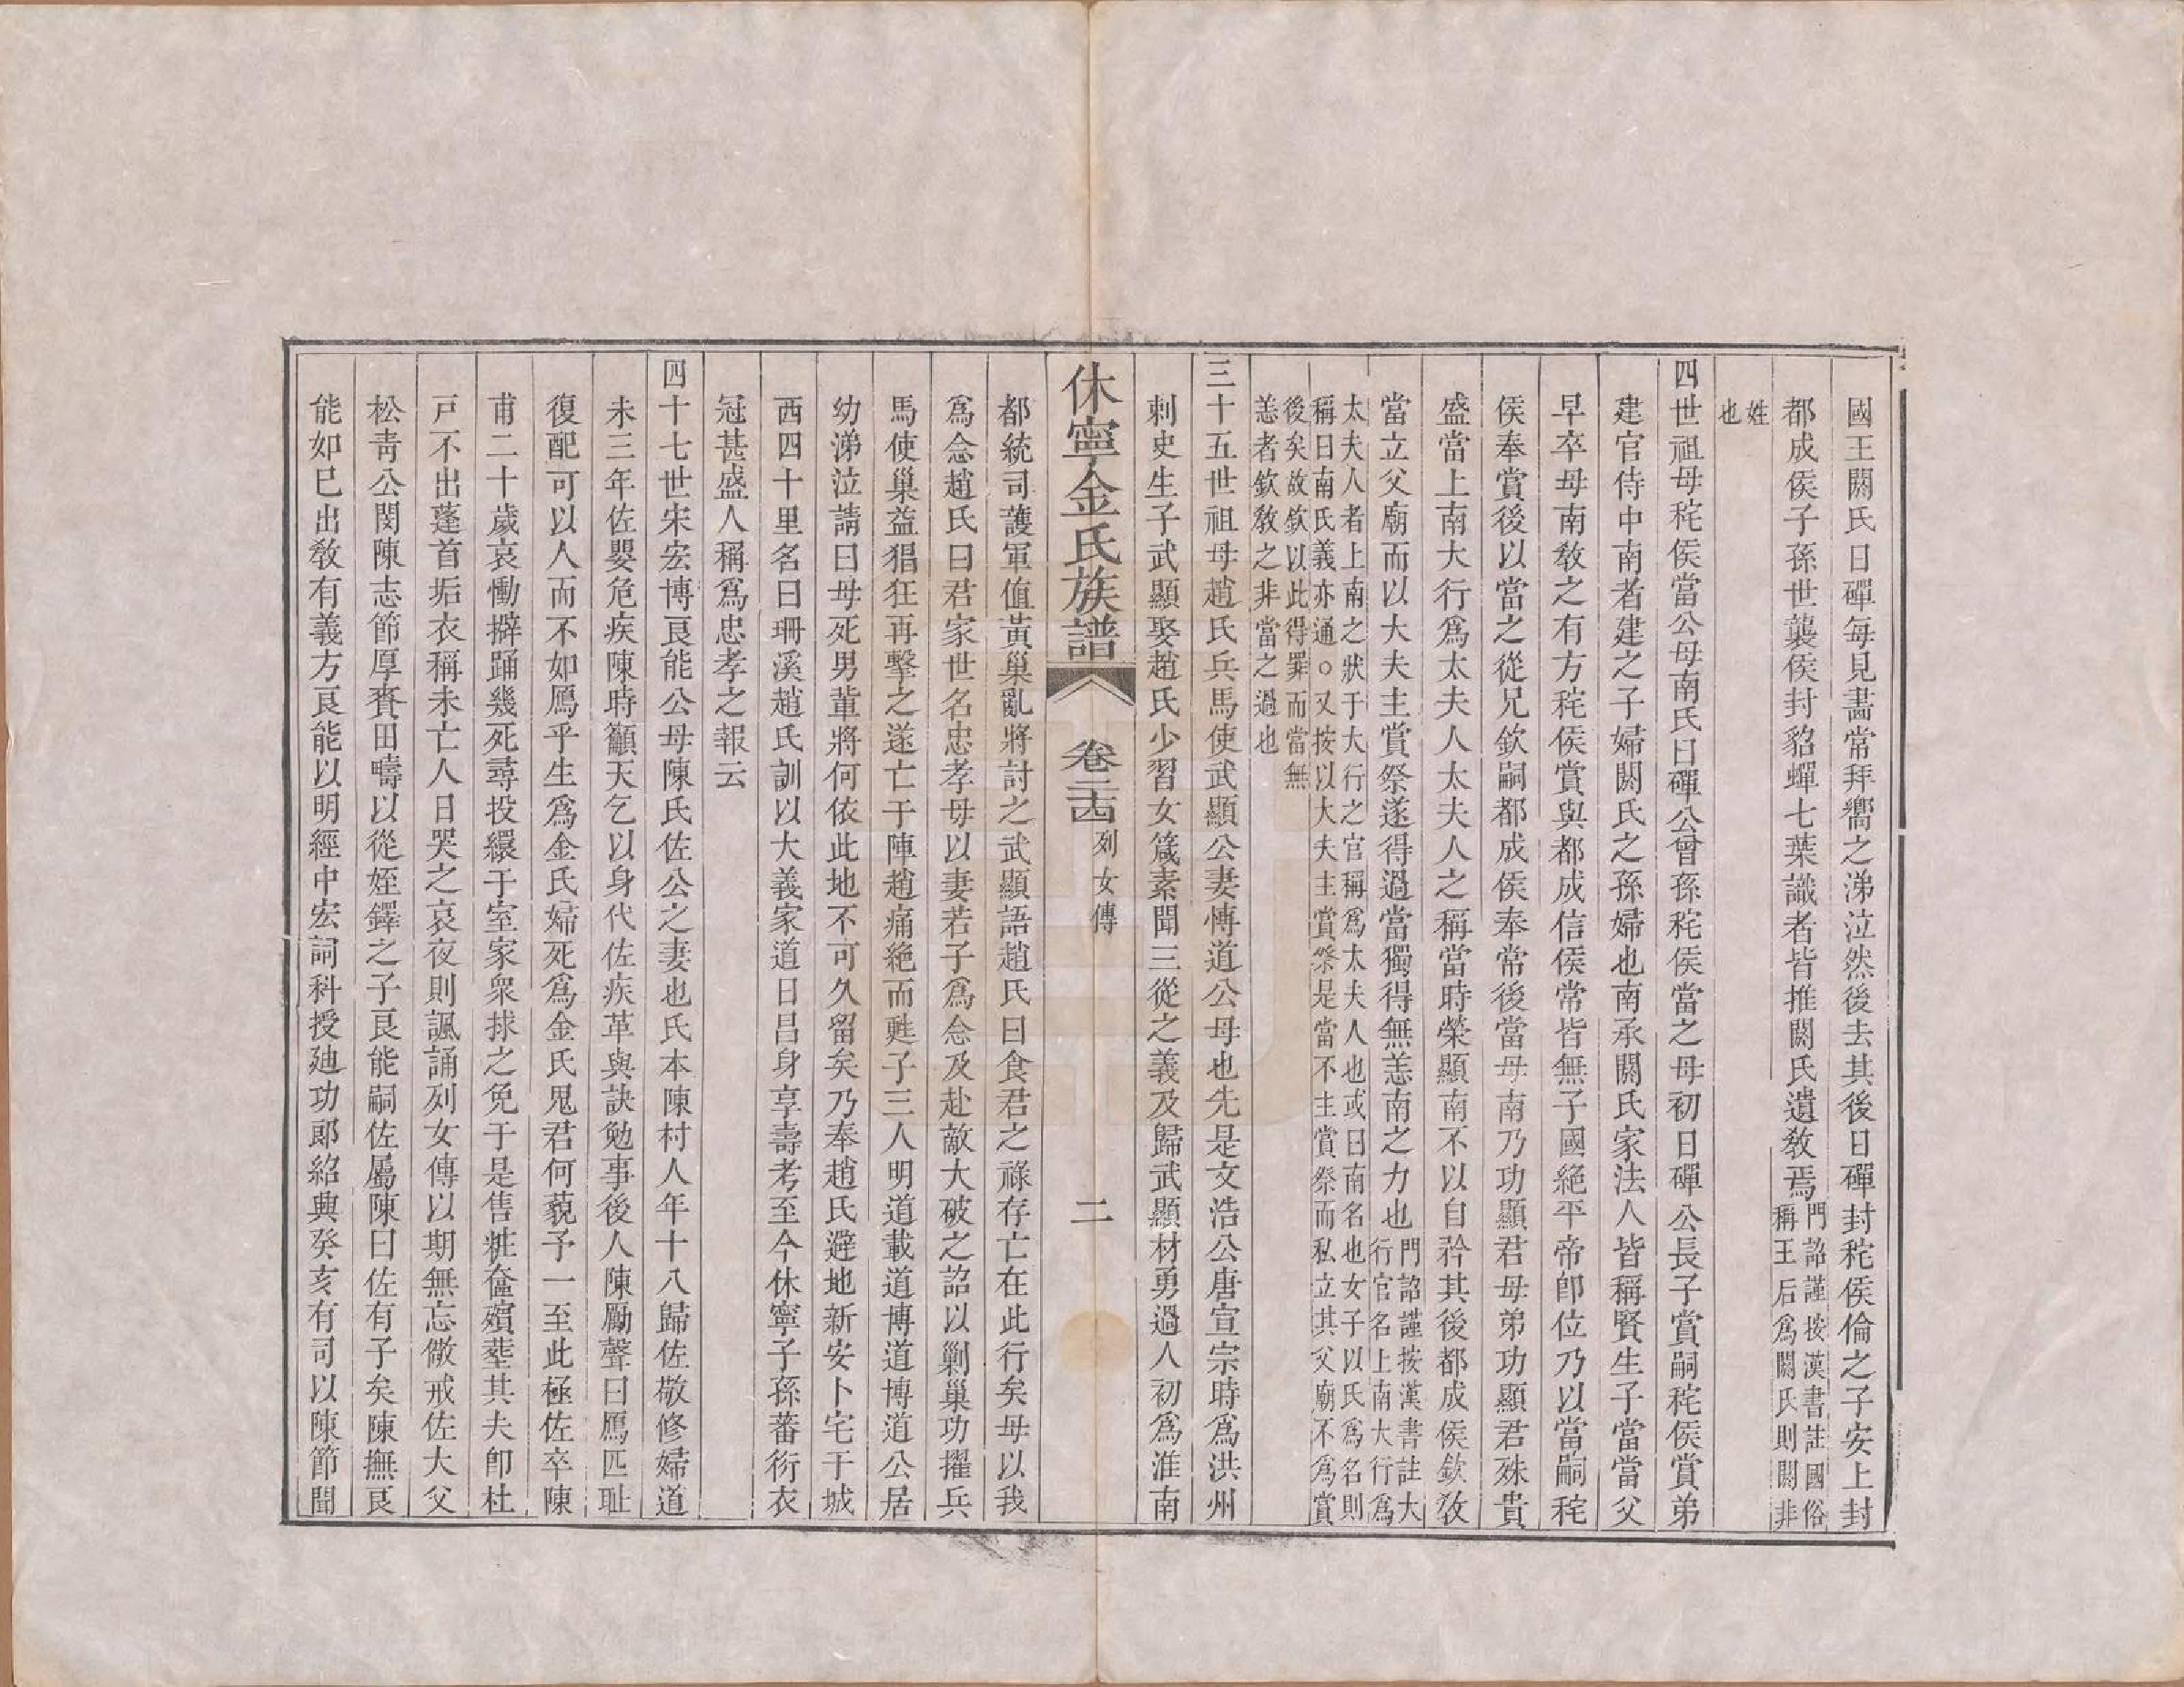 國王閼氏日磾每見畵常拜嚮之涕泣然後去其後日磾封秺侯倫之子安上封
都成侯子孫世襲侯封貂蟬七葉識者皆推閼氏遺敎焉
門詔謹按漢書註國俗
稱王后爲閼氏則閼非
姓
也
四世祖母秺侯當公母南氏日磾公曾孫秺侯當之母初日磾公長子賞嗣秺侯賞弟
建官侍中南者建之子婦閼氏之孫婦也南承閼氏家法人皆稱賢生子當當父
早卒母南敎之有方秺侯賞與都成信侯常皆無子國絕平帝卽位乃以當嗣秺
侯奉賞後以當之從兄欽嗣都成侯奉常後當母南乃功顯君母弟功顯君殊貴
盛當上南大行爲太夫人太夫人之稱當時榮顯南不以自矜其後都成侯欽敎
當立父廟而以大夫主賞祭遂得過當獨得無恙南之力也
門詔謹按漢書註大
行官名上南大行爲
太夫人者上南之狀于大行之官稱爲太夫人也或曰南名也女子以氏爲名則
稱曰南氏義亦通○又按以大夫主賞祭是當不主賞祭而私立其父廟不爲賞
後矣故欽以此得罪而當無
恙者欽敎之非當之過也
三十五世祖母趙氏兵馬使武顯公妻博道公母也先是文浩公唐宣宗時爲洪州
刺史生子武顯娶趙氏少習女箴素聞三從之義及歸武顯材勇過人初爲淮南
休寧金氏族譜
卷二十四
列女傳
二
都統司護軍值黃巢亂將討之武顯語趙氏曰食君之祿存亡在此行矣毋以我
爲念趙氏曰君家世名忠孝毋以妻若子爲念及赴敵大破之詔以剿巢功擢兵
馬使巢益猖狂再擊之遂亡于陣趙痛絕而甦子三人明道載道博道博道公居
幼涕泣請曰母死男輩將何依此地不可久留矣乃奉趙氏避地新安卜宅于城
西四十里名曰珊溪趙氏訓以大義家道日昌身享壽考至今休寧子孫蕃衍衣
冠甚盛人稱爲忠孝之報云
四十七世宋宏博良能公母陳氏佐公之妻也氏本陳村人年十八歸佐敬修婦道
未三年佐嬰危疾陳時籲天乞以身代佐疾革與訣勉事後人陳勵聲曰鴈匹耻
復配可以人而不如鴈乎生爲金氏婦死爲金氏鬼君何藐予一至此極佐卒陳
甫二十歲哀慟擗踊幾死尋投繯于室家衆捄之免于是售粧奩殯塟其夫卽杜
戸不出蓬首垢衣稱未亡人日哭之哀夜則諷誦列女傳以期無忘儆戒佐大父
松靑公閔陳志節厚賚田疇以從姪鐸之子良能嗣佐屬陳曰佐有子矣陳撫良
能如巳出敎有義方良能以明經中宏詞科授廸功郞紹興癸亥有司以陳節聞